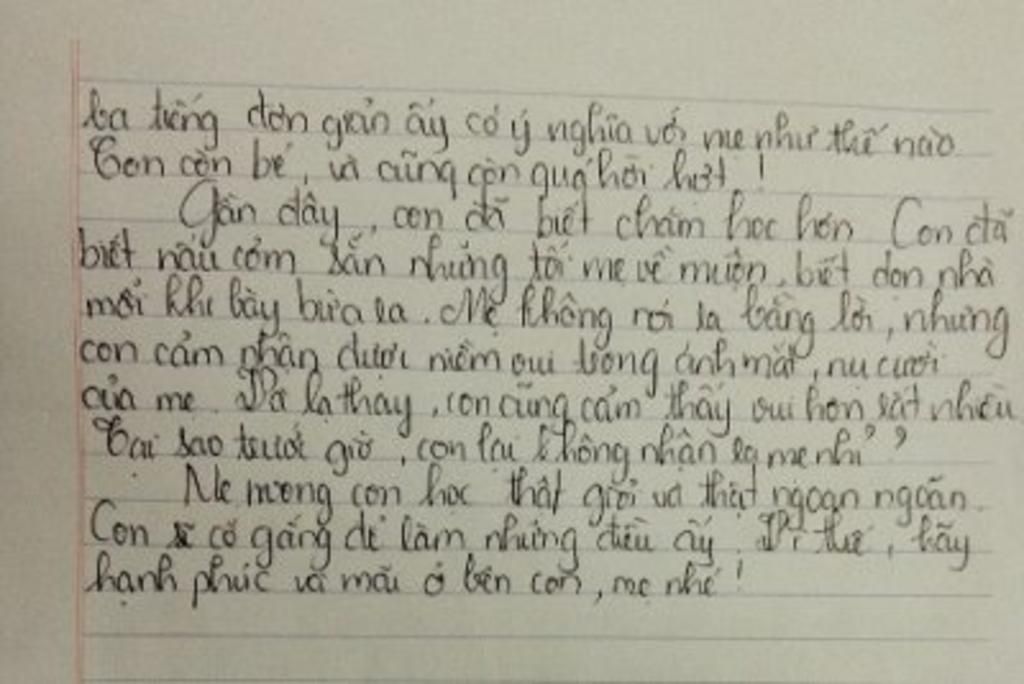 ba tiếng đơn giản ấy có ý nghĩa với mẹ như thế nào.
Con còn bé, và cũng còn quá hời hợt!
Gần đây, con đã biết chăm học hơn. Con đã
biết nấu cơm sẵn những tối mẹ về muộn, biết dọn nhà
mỗi khi bày bừa ra. Mẹ không nói ra bằng lời, nhưng
con cảm nhận được niềm vui trong ánh mắt, nụ cười
của mẹ. Và lạ thay, con cũng cảm thấy vui hơn rất nhiều.
Tại sao trước giờ, con lại không nhận ra mẹ nhỉ?
Mẹ mong con học thật giỏi và thật ngoan ngoãn.
Con sẽ cố gắng để làm những điều ấy. Vì thế, hãy
hạnh phúc và mãi ở bên con, mẹ nhé!